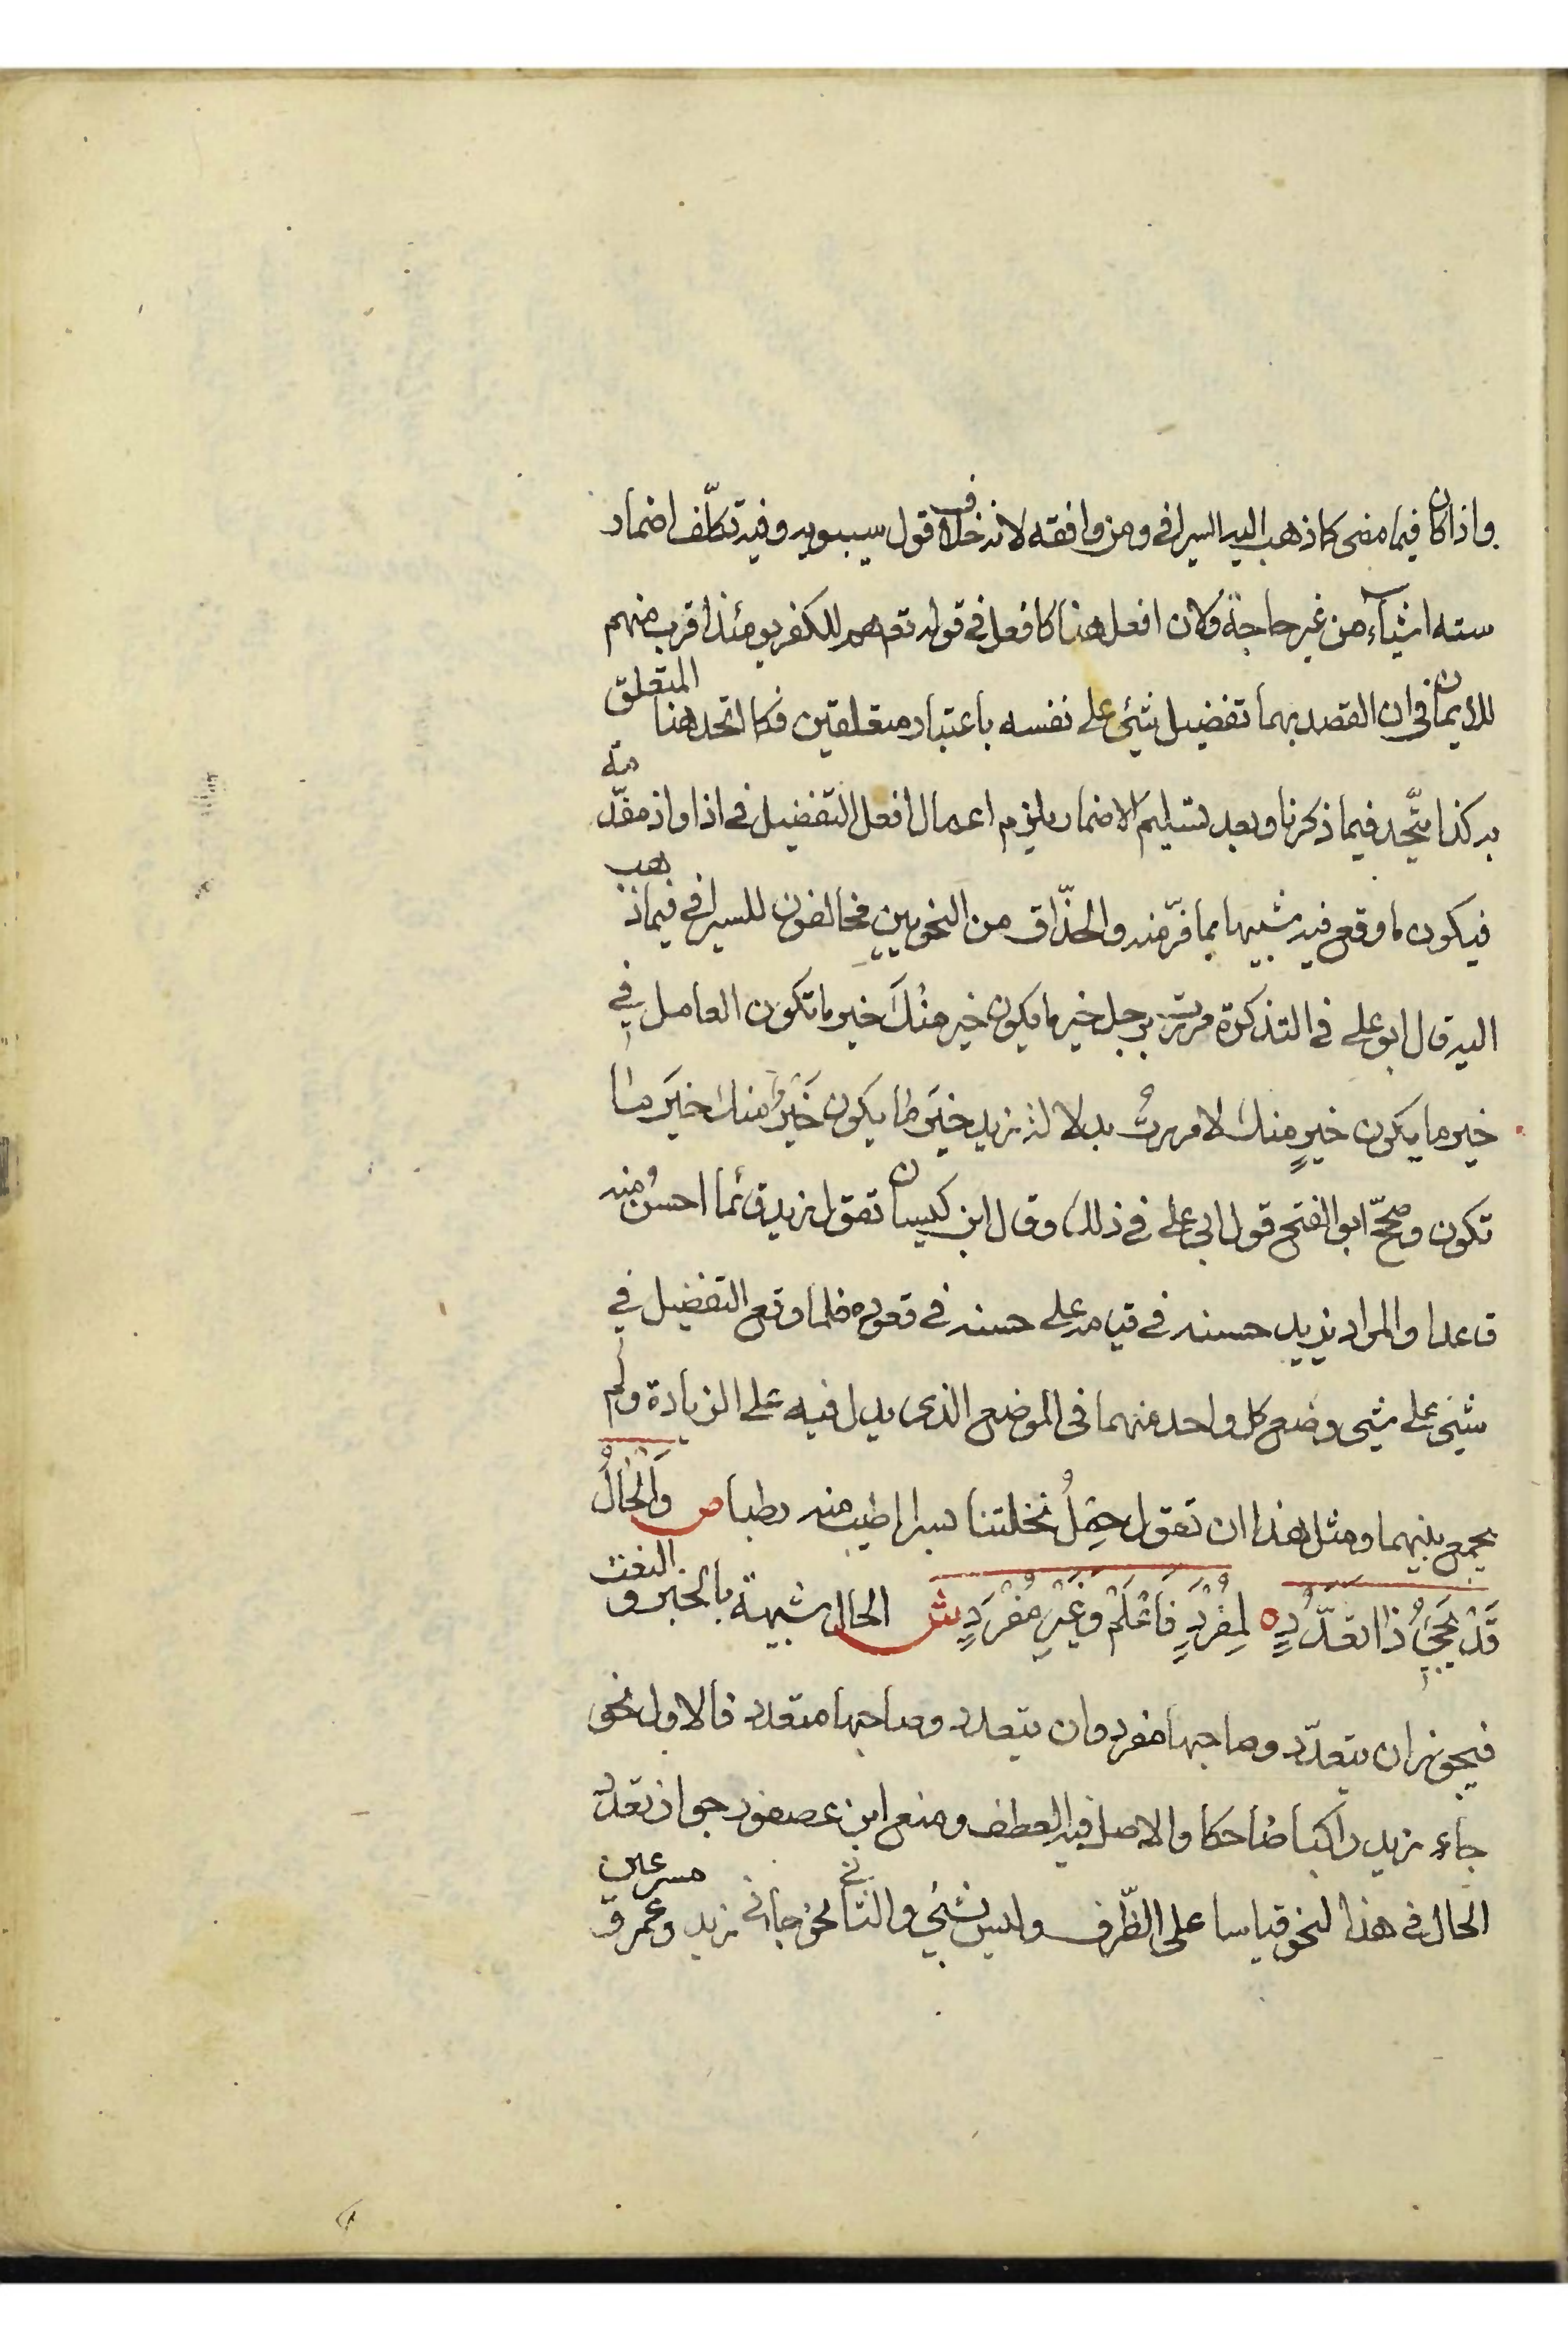 واذا كان فيما مضى كما ذهب اليه السيرافي ومن وافقه لانه خلاف قول سيبويه وفيه تكلّف اضمار
ستة اشيآء من غير حاجة ولان افعل هنا كافعل في قوله تع هم للكفر يومئذ اقرب منهم
للايمان في ان القصد بهما تفضيل شئ على نفسه باعتبار متعلقين فكما اتحد هنا المتعلق
به كذا يتّحد فيما ذكرنا وبعد تسليم الاضمار يلزم اعمال افعل التفضيل في اذا واذ مقدّمة
فيكون ما وقع فيه شبيها بما فرّ منه والحذّاق من النحويين مخالفون للسيرافي فيما ذهب
اليه قال ابو علي في التذكرة مررت برجل خير ما يكون خير منك خير ما تكون العامل في
خير ما يكون خيرٍ منك لا مررتُ بدلالة زيد خيَر ما يكون خَيْرٌ منك خيَر ما
تكون وصحّح ابو الفتح قول ابي علي في ذلك وقال ابن كيسان تقول زيد قائما احسنُ منه
قاعدا والمراد يزيد حسنه في قيامه على حسنه في قعوده فلما وقع التفضيل في
شئ على شئ وضع كل واحد منهما في الموضع الذي يدل فيه على الزيادة ولم
يجمع بينهما ومثل هذا ان تقول حِمْلُ نخلتنا بسرا اطيب منه رطبا ص وَالْحَالُ
قَدْ يَجِئُ ذَا تَعَدُّدٍ ه لِمُفْرَدٍ فَاعْلَمْ وَغَيْرِ مُفْرَدٍ ش الحال شبيهة بالخبر والنعت
فيجوز ان يتعدّد وصاحبها مفرد وان يتعدد وصاحبها متعدد فالاول نحو
جاء زيد راكبا ضاحكا والاصل فيه العطف ومنع ابن عصفور جواز تعدّد
الحال في هذا النحو قياسا على الظّرف وليس بشئ والثاني نحو جاءني زيد وعمرو مسرعين